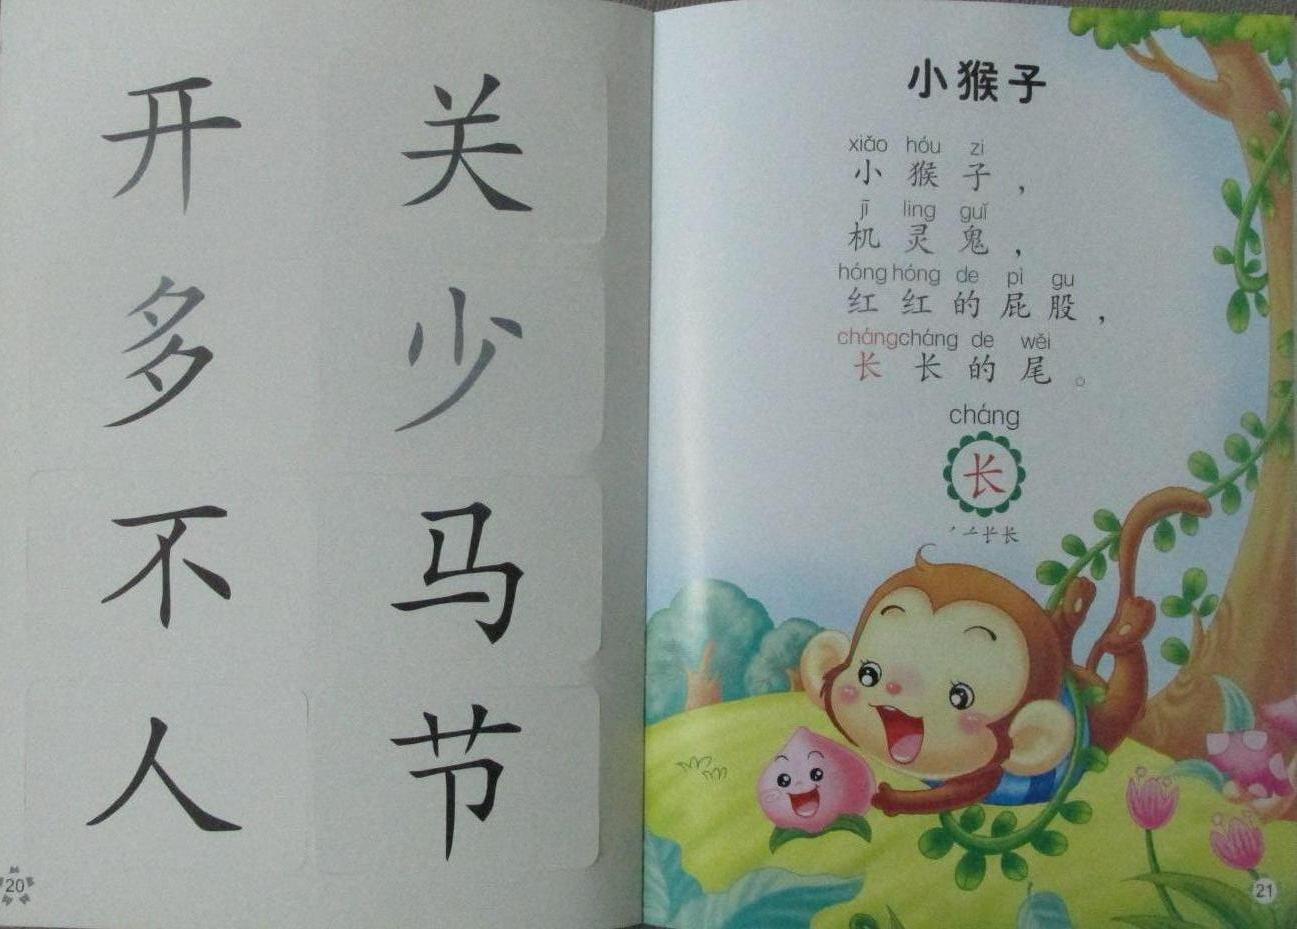 开 关
多 少
不 马
人 节
20
小猴子
xiǎo hóu zi
小 猴 子 ，
jī ling guǐ
机 灵 鬼 ，
hóng hóng de pì gu
红 红 的 屁 股 ，
cháng cháng de wěi
长 长 的 尾 。
cháng
长
21